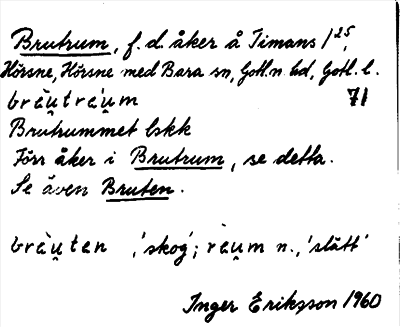 Brutrum, f.d. åker å Timans 1²⁵,
Hörsne, Hörsne med Bara sn, Gotl.n. hd, Gotl. l.
brèu̯trèu̯m 71
Brutrummet lskk
Förr åker i Brutrum, se detta.
Se även Bruten.
brèu̯ten ,'skog'; rèu̯m n., 'slätt'
Inger Eriksson 1960